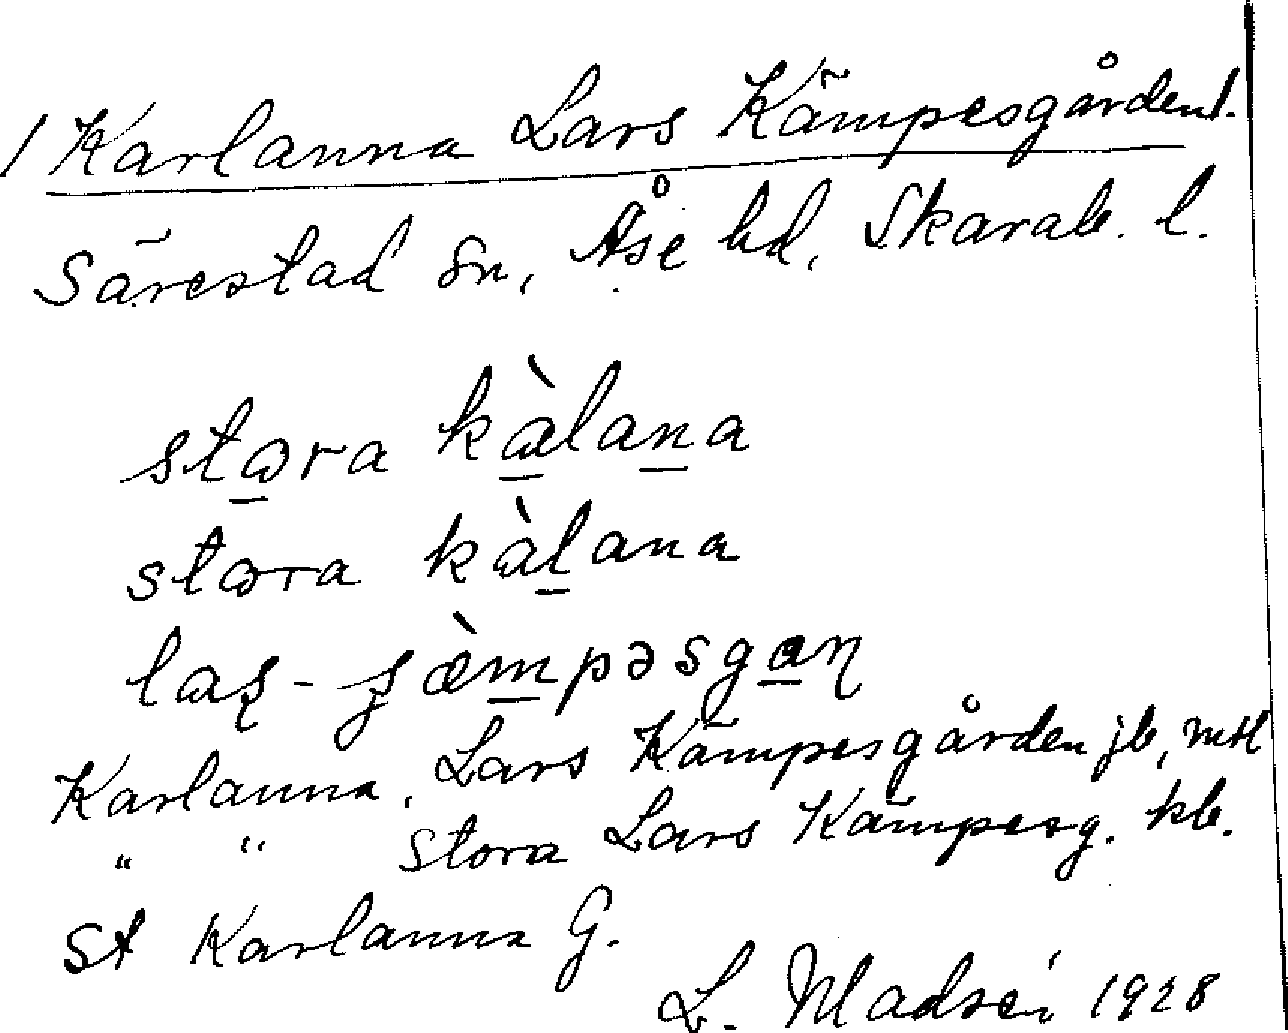 / Karlanna Lars Kämpesgården /.
Särestad sn, Åse hd, Skarab. l.
stɷra kàlana
stɷra kàlana
laʂ-ʂæ̀mpəsgaɳ
Karlanna, Lars Kämpesgården jb, mtl
" " Stora Lars Kämpesg. kb.
St Karlanna G.
L. Madsén 1928